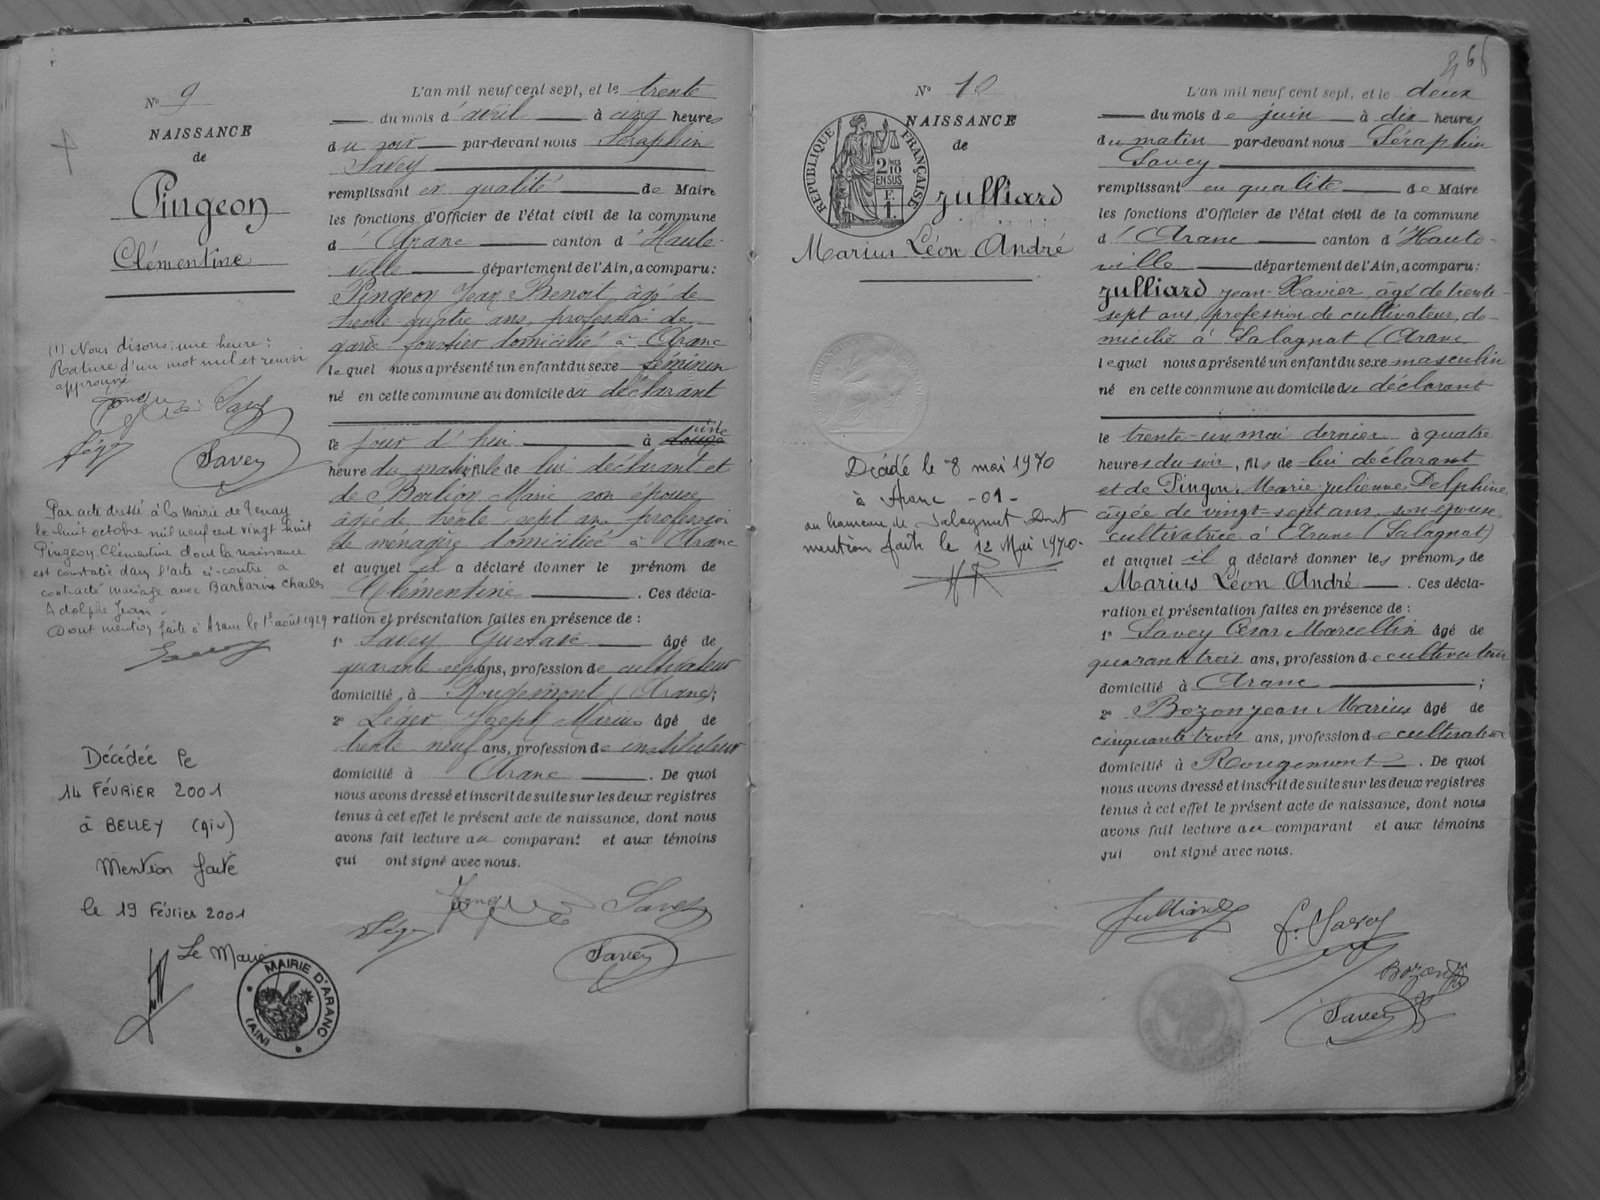 N° 9
NAISSANCE
de
Pingeon
Clémentine
(1) Nous disons: une heure;
Rature d'un mot nul et renvoi
approuvé
Savey
Léger
Savey
Par acte dressé à la mairie de Tenay
le huit octobre mil neuf cent vingt huit
Pingeon Clémentine dont la naissance
est constatée dans l'acte ci-contre a
contracté mariage avec Barbarin Charles
Adolphe Jean.
Dont mention faite à Aranc le 1er août 1929
Décédée le
14 FÉVRIER 2001
à BELLEY (Ain)
Mention faite
le 19 Février 2001
Le Maire
MAIRIE D'ARANC
(AIN)
L'an mil neuf cent sept, et le trente
du mois d'avril à cinq heures
du soir par-devant nous Séraphin
Savey
remplissant en qualité de Maire
les fonctions d'Officier de l'état civil de la commune
d'Aranc canton d'Haute-
ville département de l'Ain, a comparu:
Pingeon Jean Benoit âgé de
trente quatre ans, profession de
garde forestier domicilié à Aranc
lequel nous a présenté un enfant du sexe féminin
né en cette commune au domicile du déclarant
le jour d'hui à douze une
heure du matin, fille de lui déclarant et
de Berlion Marie son épouse
âgée de trente sept ans profession
de ménagère domiciliée à Aranc
et auquel il a déclaré donner le prénom de
Clémentine. Ces décla-
ration et présentation faites en présence de:
1° Savey Gustave âgé de
quarante sept ans, profession de cultivateur
domicilié à Rougemont (Aranc);
2° Léger Joseph Marius âgé de
trente neuf ans, profession de instituteur
domicilié à Aranc. De quoi
nous avons dressé et inscrit de suite sur les deux registres
tenus à cet effet le présent acte de naissance, dont nous
avons fait lecture au comparant et aux témoins
qui ont signé avec nous.
Savey
Léger
Savey
N° 10
NAISSANCE
de
RÉPUBLIQUE FRANÇAISE
2/10 EN SUS
F. 1.
Julliard
Marius Léon André
Décédé le 8 mai 1970
à Aranc -01-
au hameau de Salagnat. Dont
mention faite le 12 Mai 1970.
L'an mil neuf cent sept, et le deux
du mois de juin à dix heures
du matin par-devant nous Séraphin
Savey
remplissant en qualité de Maire
les fonctions d'Officier de l'état civil de la commune
d'Aranc canton d'Haute-
ville département de l'Ain, a comparu:
Julliard Jean-Xavier, âgé de trente-
sept ans, profession de cultivateur, do-
micilié à Salagnat (Aranc
lequel nous a présenté un enfant du sexe masculin
né en cette commune au domicile du déclarant
le trente-un mai dernier à quatre
heures du soir, fils de lui déclarant
et de Pingon Marie-Julienne Delphine
âgée de vingt-sept ans, son épouse,
cultivatrice à Aranc (Salagnat)
et auquel il a déclaré donner les prénoms de
Marius Léon André. Ces décla-
ration et présentation faites en présence de:
1° Savey César Marcellin âgé de
quarante trois ans, profession de cultivateur
domicilié à Aranc;
2° Bozonjean Marius âgé de
cinquante trois ans, profession de cultivateur
domicilié à Rougemont. De quoi
nous avons dressé et inscrit de suite sur les deux registres
tenus à cet effet le présent acte de naissance, dont nous
avons fait lecture au comparant et aux témoins
qui ont signé avec nous.
Julliard
Savey
Bozonj
Savey